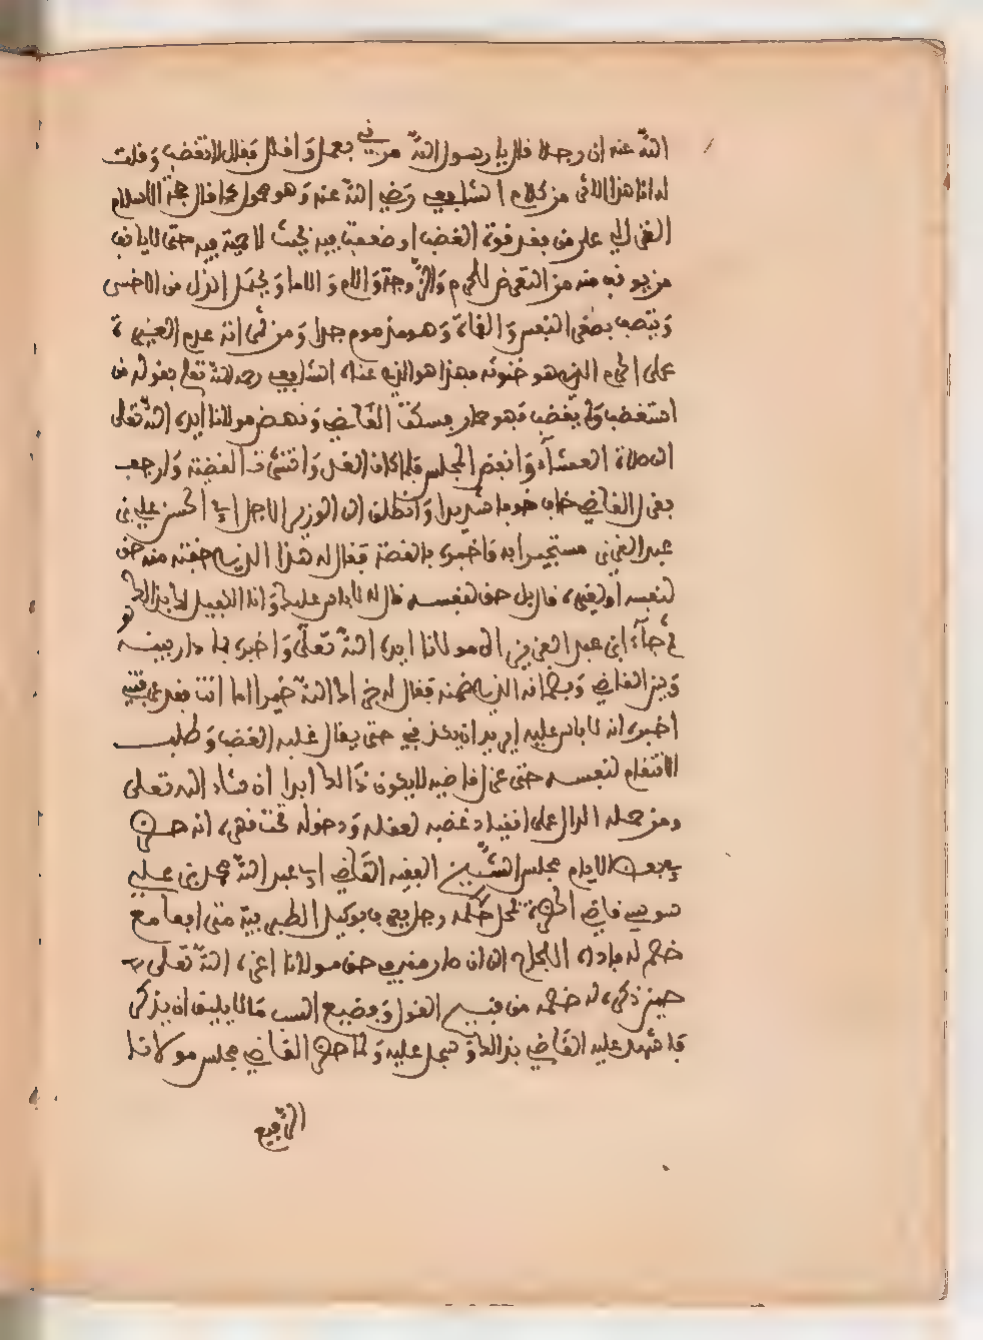 الله عنه ان رجلا قال يا رسول الله مرني بعمل وأقلل فقال لا تغضب وقلت
له انما هذا الاثر من كلام الشافعي رضي الله عنه وهو محمول كما قال حجة الاسلام
الغزالي على من فقد قوة الغضب او ضعفت فيه بحيث لا حمية فيه حتى لا يانف
مما يونف منه من التعرض للحرم والزوجة والام والاما ويحتمل الذل من الاخس
ويتصف بصغر النفس والقماة وهو مذموم جدا ومن ثمراته عدم الغيرة
على الحرم الذي هو خنوثة فهذا هو الذي عناه الشافعي رحمه الله تعلى بقوله من
استغضب ولم يغضب فهو حمار فسكت القاضي ونهض مولانا ايده الله تعلى
الى صلاة العشاء وانفض المجلس فلما كان الغد وانتشرت القضية وارجف
بعزل القاضي خاف خوفا شديدا وانطلق الى الوزير الاجل ابي الحسن علي بن
عبد العزيز مستجيرا به فاخبره بالقصة فقال له هذا الذي خفته منه حق
لنفسه او لغيره قال بل حق لنفسه قال له لا باس عليك وانا الكفيل لك بذالك
ثم جاء ابن عبد العزيز الى مولانا ايده الله تعلى واخبره بما دار بينه
وبين القاضي وبضمانه الذي ضمنه فقال له جزاك الله خيرا اما انت فقد عرفتني
اخبره انه لا باس عليه ايريد ان يذكرني حتى يقال غلبه الغضب وطلب
الانتقام لنفسه حتى عزل قاضيه لا يكون ذالك ابدا ان شاء الله تعلى
ومن حلمه الدال على انقياد غضبه لعقله ودخوله تحت قهره انه حضر
في بعض الايام مجلس الفقيه القاضي ابي عبد الله محمد بن علي
قاضي الحضرة بمحل حكمه رجل يعرف بوكيل الطبربية متى ابعا مع
خصم له فاداه اللجاج الى ان صار منه في حق مولانا اعزه الله تعلى
حين ذكره له خصمه من قبيح القول وفضيع السب ما لا يليق ان يذكر
فاشهد عليه القاضي بذالك وسجل عليه ولما حضر القاضي مجلس مولانا
الرفيع